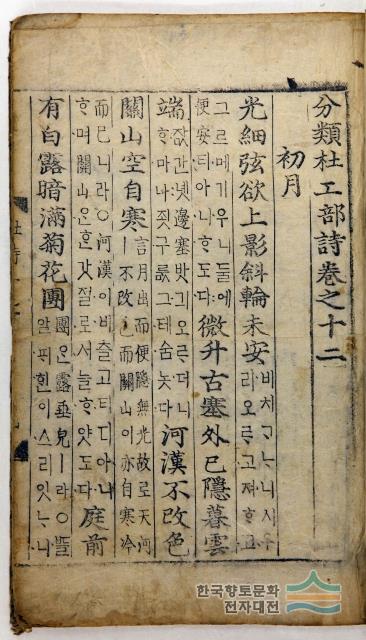 分類杜工部詩卷之十二
初月
光細弦欲上影斜輪未安 비치ᄀᆞᄂᆞ니시우
리오ᄅᆞ고져ᄒᆞ고
그르메기우니둘에
便安티아니ᄒᆞ도다 微升古塞外已隱暮雲
端 잢간녯邊塞밧긔오ᄅᆞ더니
ᄒᆞ마나죗구룺그테숨놋다 河漢不改色
關山空自寒 言月出而便隱無光故로天河
ㅣ不改而關山이亦自寒冷
而已니라○河漢이비츨고티디아니
ᄒᆞ며關山은ᄒᆞᆫ갓절로서늘ᄒᆞ얏도다 庭前
有白露暗滿菊花團 團ᄋᆞᆫ露垂皃ㅣ라○ᄠᅳᆯ
알ᄑᆡᄒᆡᆫ이스리잇ᄂᆞ니
한국향토문화
전자대전